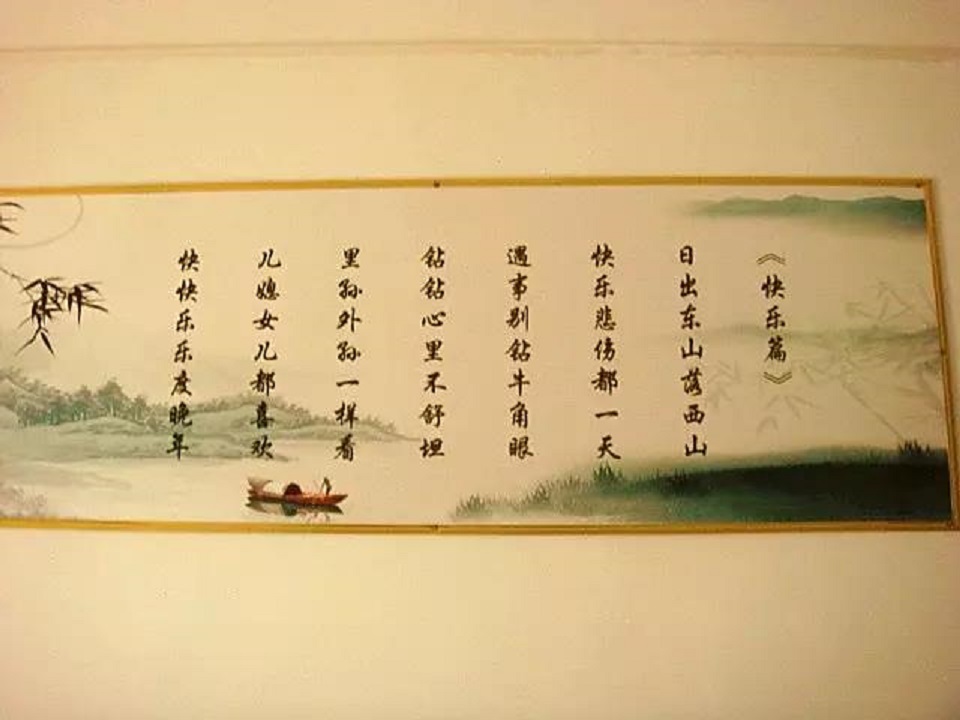 《快乐篇》
日出东山落西山
快乐悲伤都一天
遇事别钻牛角眼
钻钻心里不舒坦
里孙外孙一样看
儿媳女儿都喜欢
快快乐乐度晚年